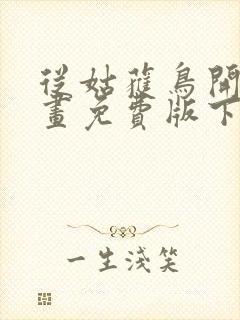 從姑獲鳥開
畫免費版下
一生淺笑